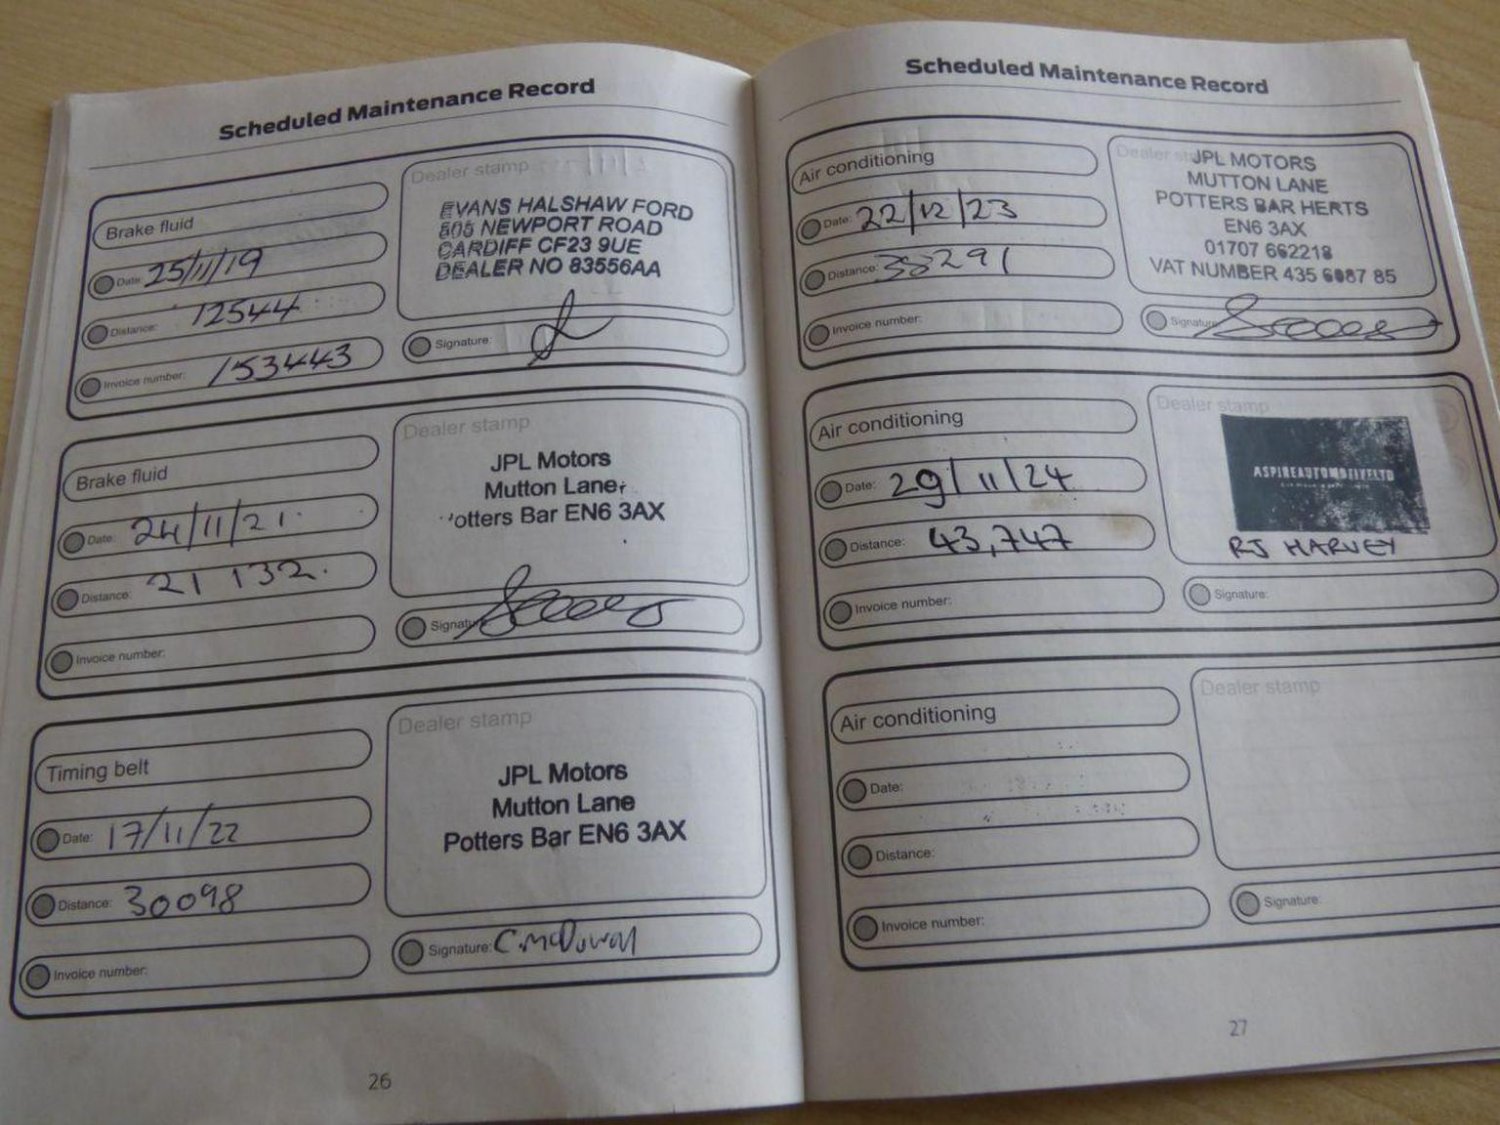 Scheduled Maintenance Record
Brake fluid
Date: 25/11/19
Distance: 12544
Invoice number: 153443
Dealer stamp
EVANS HALSHAW FORD
505 NEWPORT ROAD
CARDIFF CF23 9UE
DEALER NO 83556AA
Signature:
Brake fluid
Date: 24/11/21.
Distance: 21132.
Invoice number:
Dealer stamp
JPL Motors
Mutton Lane,
otters Bar EN6 3AX
Signatu
Timing belt
Date: 17/11/22
Distance: 30098
Invoice number:
Dealer stamp
JPL Motors
Mutton Lane
Potters Bar EN6 3AX
Signature: C. McDowal
26
Scheduled Maintenance Record
Air conditioning
Date: 22/12/23
Distance: 38291
Invoice number:
Dealer st
JPL MOTORS
MUTTON LANE
POTTERS BAR HERTS
EN6 3AX
01707 662218
VAT NUMBER 435 6087 85
Signature
Air conditioning
Date: 29/11/24
Distance: 43,747
Invoice number:
Dealer stamp
ASPIREAUTOMOTIVELTD
RJ HARVEY
Signature:
Air conditioning
Date:
Distance:
Invoice number:
Dealer stamp
Signature:
27